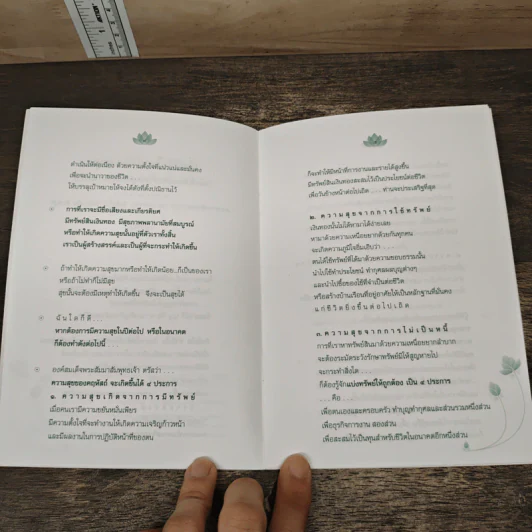 ดำเนินให้ต่อเนื่อง ด้วยความตั้งใจที่แน่วแน่และมั่นคง
เพื่อจะนำนาวาของชีวิต . . .
ให้บรรลุเป้าหมายให้จงได้ดังที่ตั้งปณิธานไว้
การที่เราจะมีชื่อเสียงและเกียรติยศ
มีทรัพย์สินเงินทอง มีสุขภาพพลานามัยที่สมบูรณ์
หรือทำให้เกิดความสุขนั้นอยู่ที่ตัวเราทั้งสิ้น
เราเป็นผู้สร้างสรรค์และเป็นผู้ที่จะกระทำให้เกิดขึ้น
ถ้าทำให้เกิดความสุขมากหรือทำให้เกิดน้อย..ก็เป็นของเรา
หรือถ้าไม่ทำก็ไม่มีสุข
สุขนั้นจะต้องมีเหตุทำให้เกิดขึ้น จึงจะเป็นสุขได้
ฉันใดก็ดี . . .
หากต้องการมีความสุขในปีต่อไป หรือในอนาคต
ก็ต้องทำดังต่อไปนี้ . . .
องค์สมเด็จพระสัมมาสัมพุทธเจ้า ตรัสว่า . . .
ความสุขของคฤหัสถ์ จะเกิดขึ้นได้ ๔ ประการ
๑. ความสุขเกิดจากการมีทรัพย์
เมื่อคนเรามีความขยันหมั่นเพียร
มีความตั้งใจที่จะทำงานให้เกิดความเจริญก้าวหน้า
และมีผลงานในการปฏิบัติหน้าที่ของตน
ก็จะทำให้มีหน้าที่การงานและรายได้สูงขึ้น
มีทรัพย์สินเงินทองสะสมไว้เป็นประโยชน์ต่อชีวิต
เพื่อวันข้างหน้าต่อไปเถิด . . . ท่านจะประเสริฐที่สุด
๒. ความสุขจากการใช้ทรัพย์
เงินทองนั้นไม่ได้หามาได้ง่ายเลย
หามาด้วยความเหนื่อยยากด้วยกันทุกคน
จะเกิดความภูมิใจอิ่มเอิบว่า . . .
ตนได้ใช้ทรัพย์ที่ได้มาด้วยความชอบธรรมนั้น
นำไปใช้ทำประโยชน์ ทำกุศลผลบุญต่างๆ
และนำไปซื้อของใช้ที่จำเป็นต่อชีวิต
หรือสร้างบ้านเรือนที่อยู่อาศัยให้เป็นหลักฐานที่มั่นคง
แก่ชีวิตยิ่งขึ้นต่อไป
๓. ความสุขจากการไม่เป็นหนี้
การที่เราหาทรัพย์สินมาด้วยความเหนื่อยยากลำบาก
จะต้องระมัดระวังรักษาทรัพย์มิให้สูญหายไป
จะกระทำสิ่งใด . . .
ก็ต้องรู้จักแบ่งทรัพย์ให้ถูกต้อง เป็น ๔ ประการ
. . . คือ . . .
เพื่อตนเองและครอบครัว ทำบุญทำกุศลและส่วนรวมหนึ่งส่วน
เพื่อธุรกิจการงาน สองส่วน
เพื่อสะสมไว้เป็นทุนสำหรับชีวิตในอนาคตอีกหนึ่งส่วน